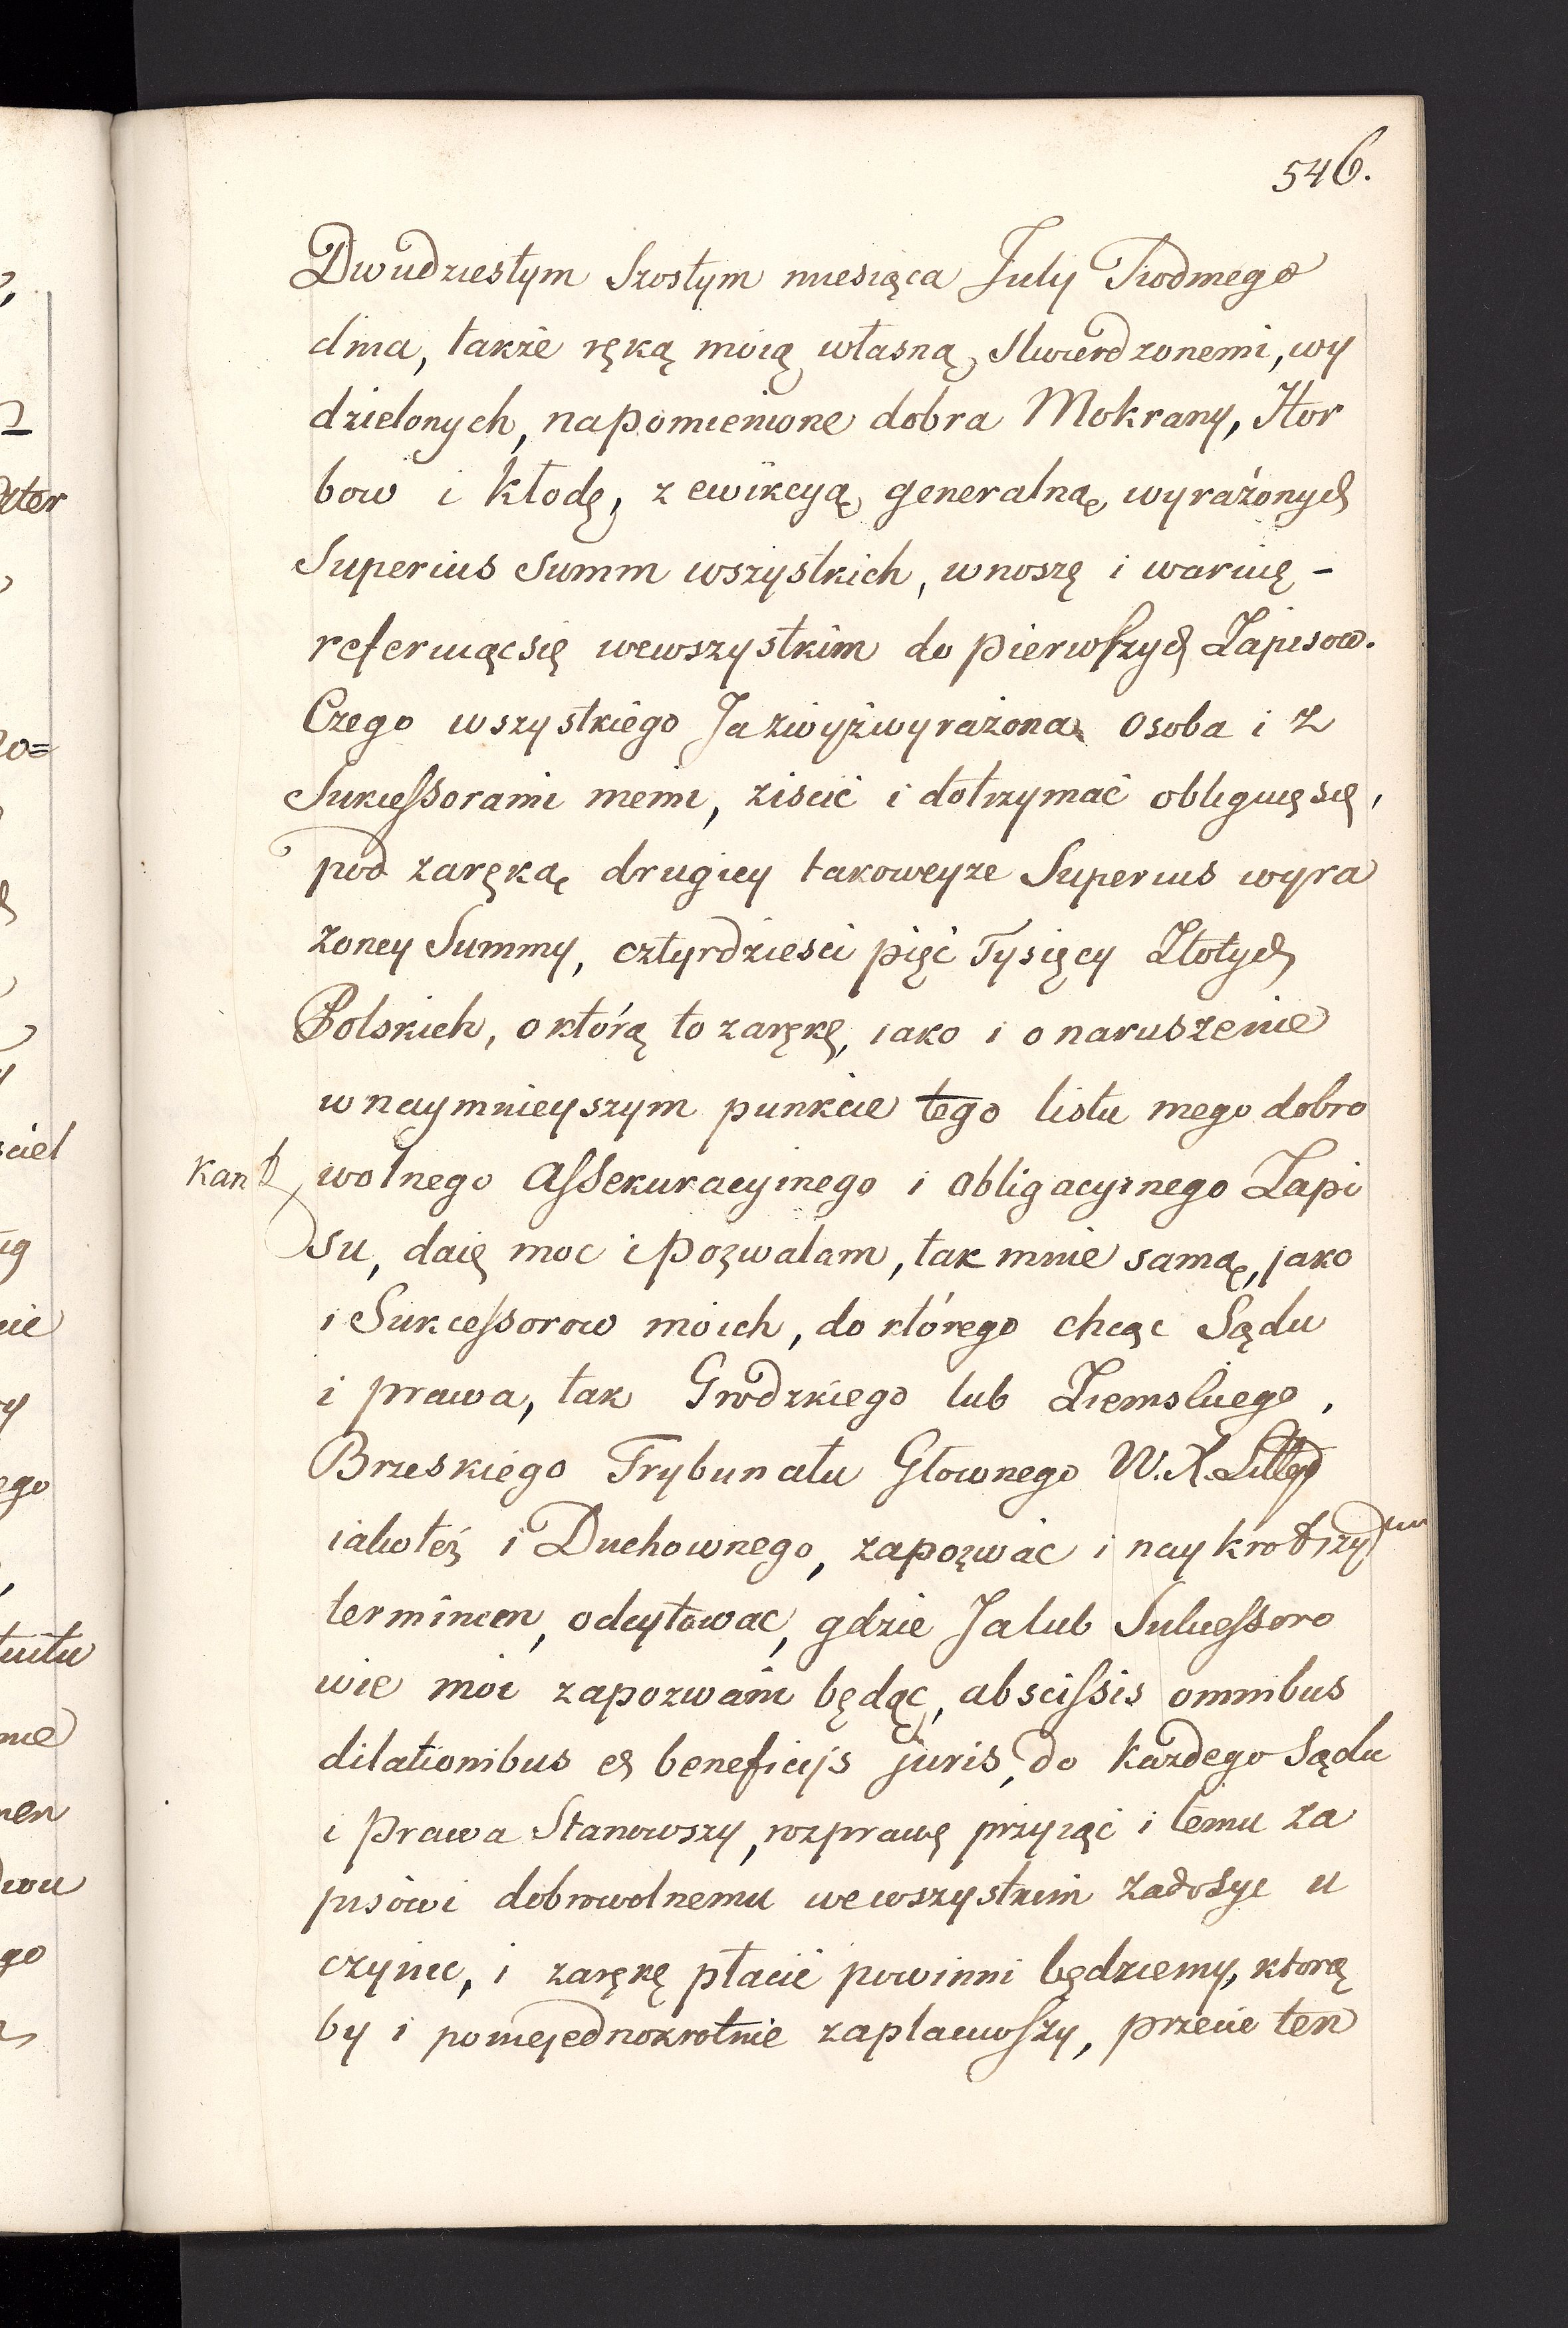 546.
Dwudziestym Szostym miesiąca July Siodmego
dnia, także ręką moią własną, stwierdzonemi, wy
dzielonych, napomienione dobra Mokrany, Hor
bow i Kłodę, z ewikcyą generalną, wyrażonych
Superius Summ wszystkich, wnoszę i waruię -
referuiącsię wewszystkim do pierwszych Zapisow.
Czego wszystkiego Ja zwyżwyrażona Osoba i z
Sukcessorami memi, ziscić i dotrzymać obliguię się,
pod zaręką drugiey takoweyże Superius wyra
żoney Summy, cztyrdziesci pięć Tysięcy Złotych
Polskich, o którą to zarękę, iako i o naruszenie
w naymnieyszym punkcie tego listu mego dobro
wolnego Assekuracyinego i obligacyinego Zapi
su, daię moc i pozwalam, tak mnie samą, jako
i Sukcessorow moich, do którego chcąc Sądu
i prawa, tak Grodzkiego lub Ziemskiego,
Brzeskiego Trybunału Głownego W. X. Litteg
iakoteż i Duchownego, zapozwac i naykrotszym
terminem, odcytowac, gdzie Ja lub Sukcessoro
wie moi zapozwani będąc, abscissis omnibus
dilationibus et beneficijs juris, do każdego Sądu
i Prawa Stanowszy, rozprawę przyiąć i temu za
pisowi dobrowolnemu wewszystkim zadosyc u
czynic, i zarękę płacić powinni będziemy, ktorą
by i poniejednokrotnie zaplaciwszy, przecie ten